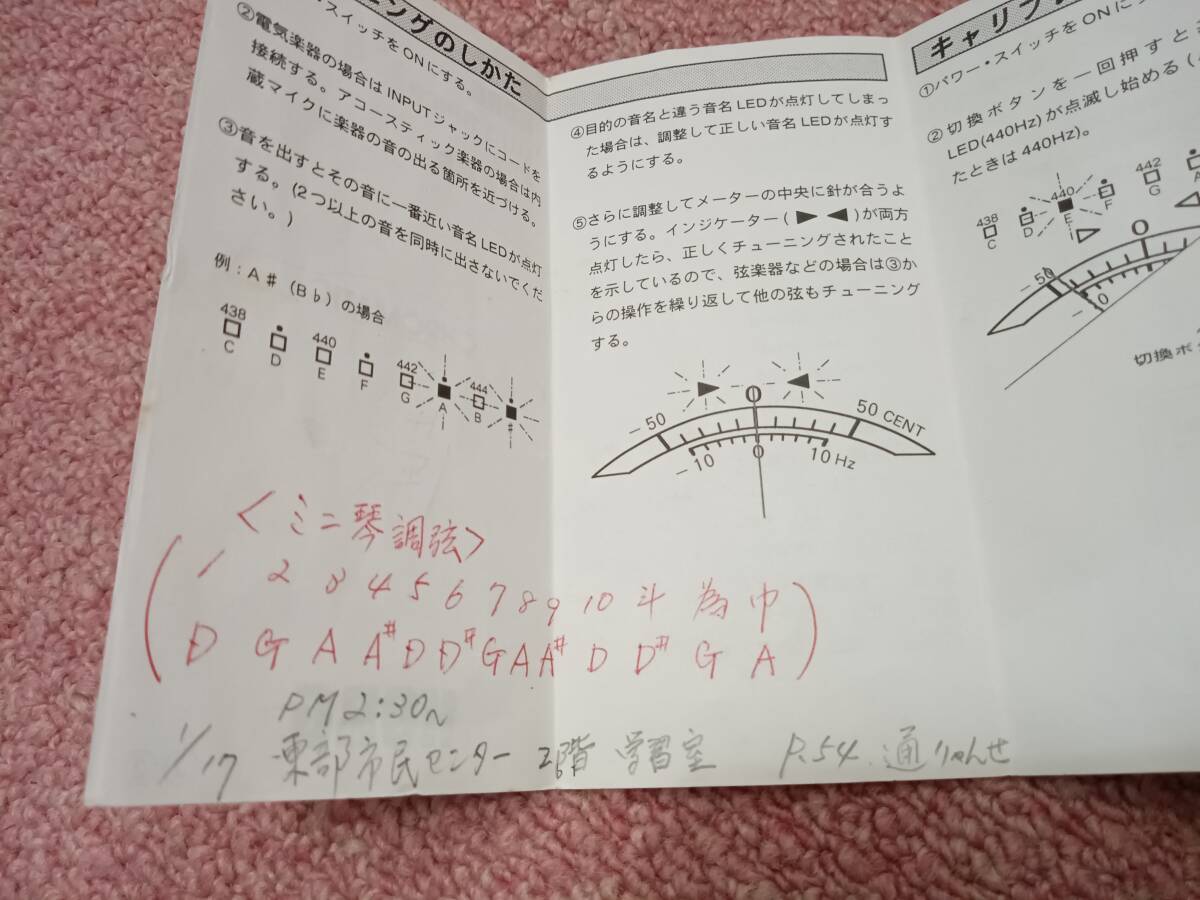 ニングのしかた
スイッチをONにする。
②電気楽器の場合はINPUTジャックにコードを
接続する。アコースティック楽器の場合は内
蔵マイクに楽器の音の出る箇所を近づける。
③音を出すとその音に一番近い音名LEDが点灯
する。(2つ以上の音を同時に出さないでくだ
さい。)
例：A♯（B♭）の場合
438 440 442 444
C D E F G A B ♯
④目的の音名と違う音名LEDが点灯してしまっ
た場合は、調整して正しい音名LEDが点灯す
るようにする。
⑤さらに調整してメーターの中央に針が合うよ
うにする。インジケーター(▶ ◀)が両方
点灯したら、正しくチューニングされたこと
を示しているので、弦楽器などの場合は③か
らの操作を繰り返して他の弦もチューニング
する。
−50 0 50 CENT
−10 0 10 Hz
キャリブ
①パワー・スイッチをONに
②切換ボタンを一回押すと
LED(440Hz)が点滅し始める
たときは440Hz)。
438 440 442
C D E F G A
−50 0
−10
切換ボ
＜ミニ琴調弦＞
1 2 3 4 5 6 7 8 9 10 斗 為 巾
D G A A# D D# G A A# D D# G A
PM2:30～
1/17 東部市民センター 2階 学習室 P.54. 通りゃんせ